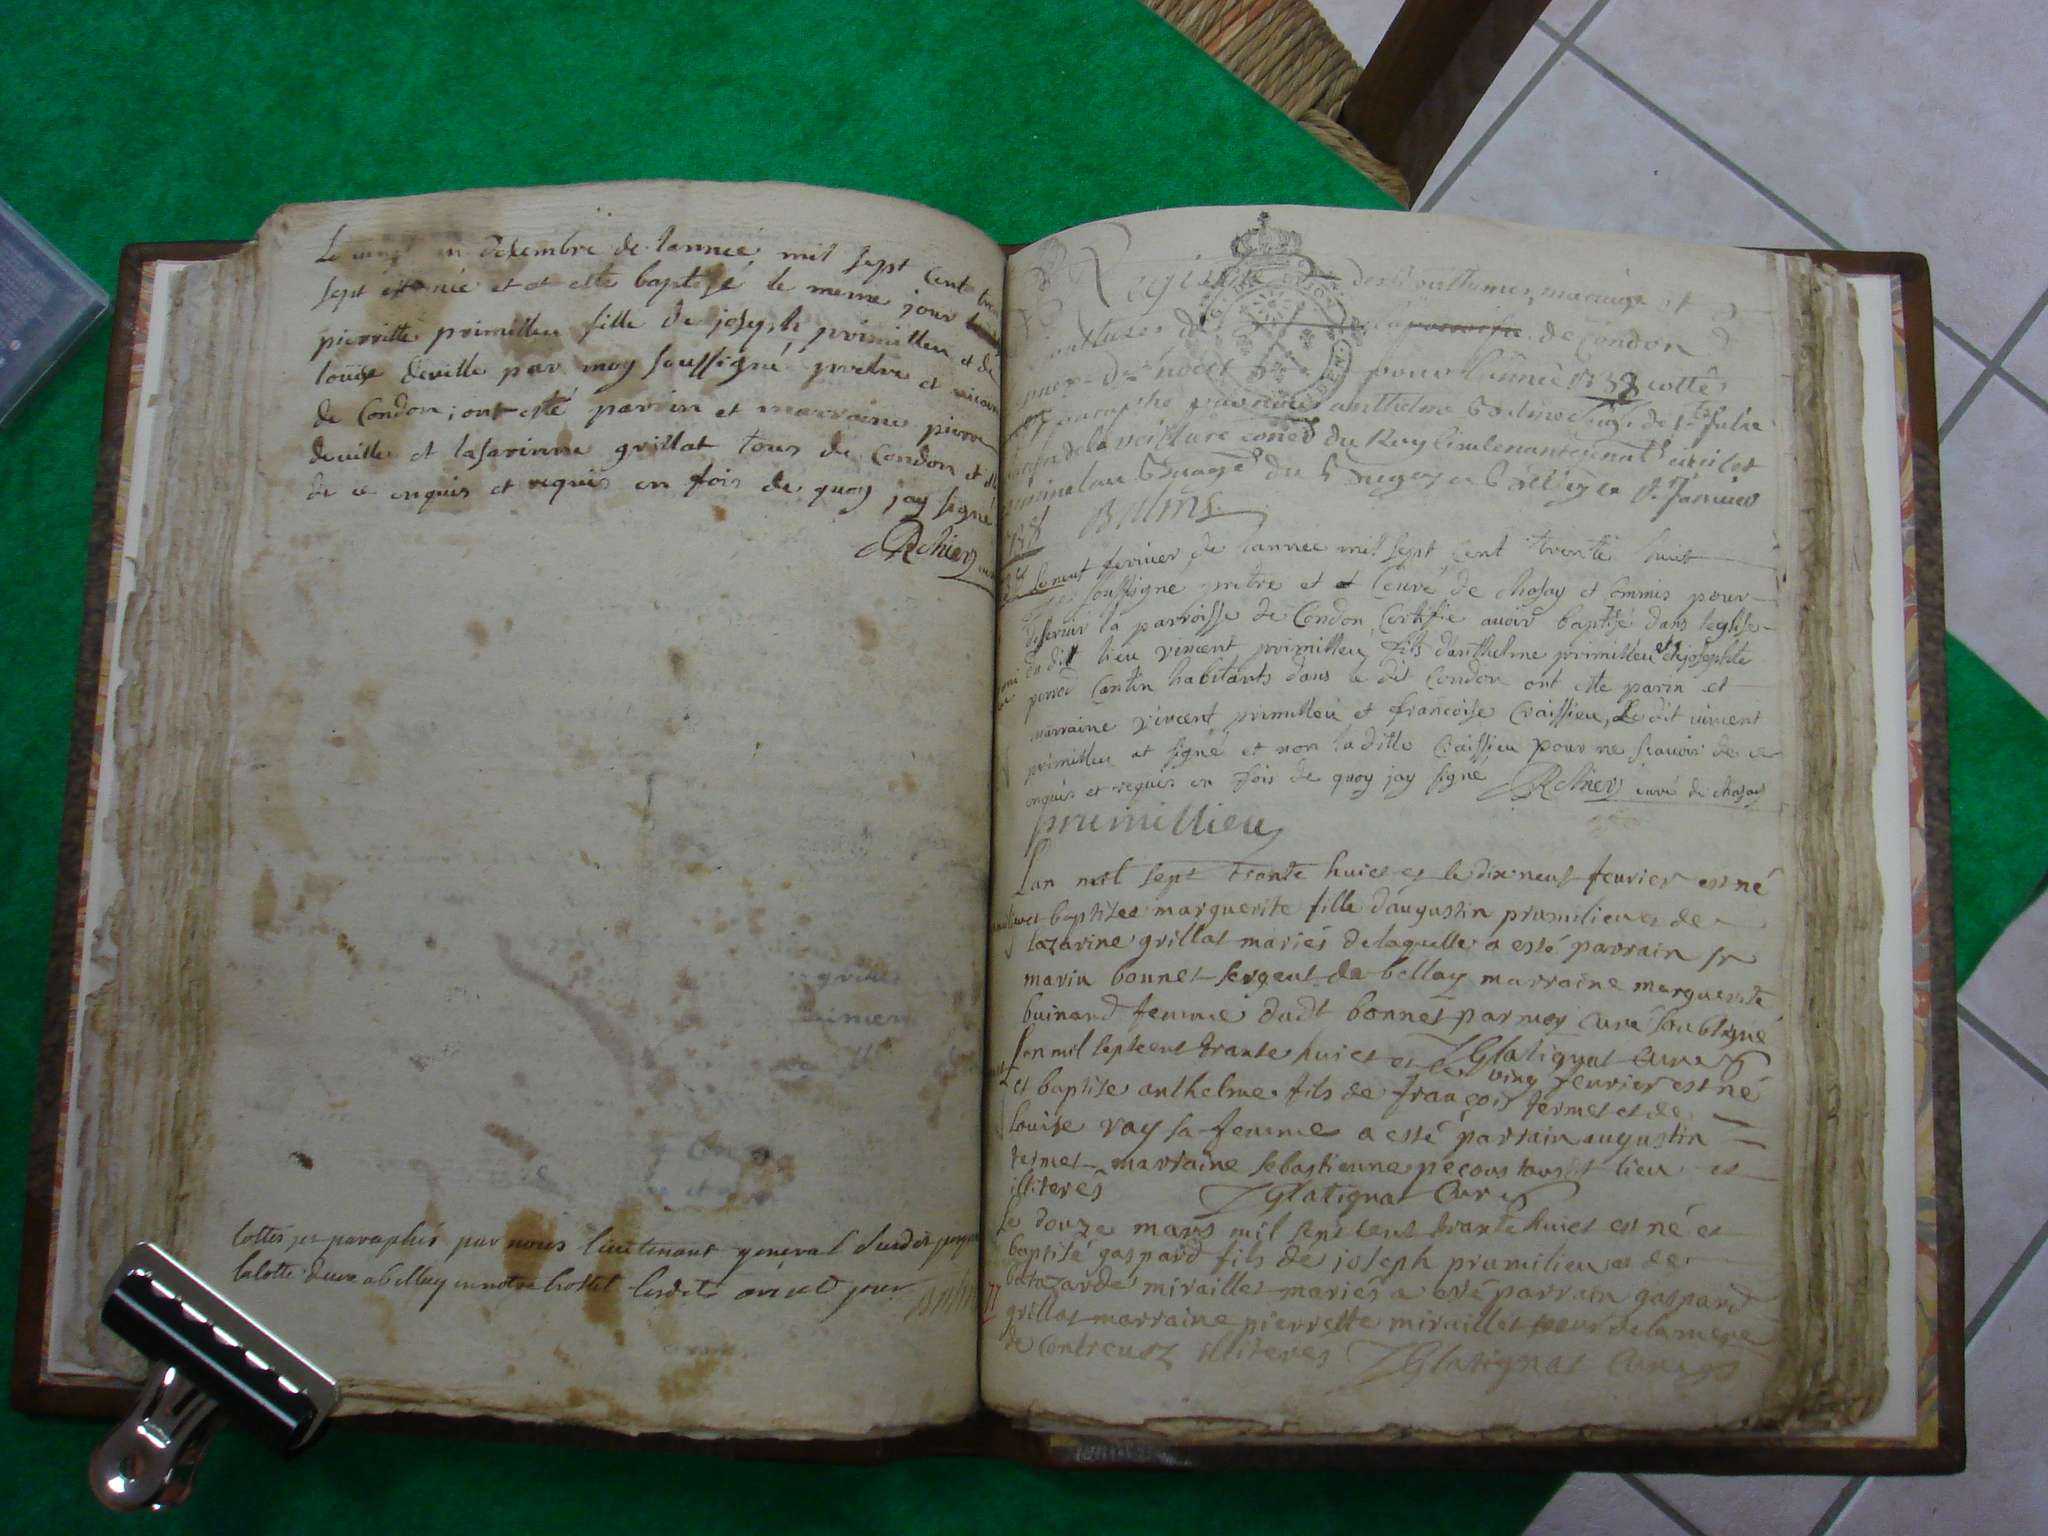 decembre de lannee mil sept Cent
sept est née et a esté baptisé le meme jour
pierrette primilleu fille de joseph primilleu et de
louise deville par moy soussigné pretre et vicaire
de Condon, ont esté parrin et marraine pierre
deville et lasarinne grillat tous de Condon et
de ce enquis et requis en fois de quoy jay signé
Rchier
Cottés et paraphés par nous lieutenant general
en notre hostel lesdits an et jour
Registre des Baptemes, mariages et
de la parroisse de Condon
pour l'année 1738 cottés
paraphé par nous anthelme
du Roy Lieutenant civil et
du Bugey
Balme
1738
Le neuf fevrier de lannee mil sept Cent trente huit
soussigne pretre et Ceuré de Chasay et Commis pour
deservir la parroisse de Condon Certifie auoir baptisé dans leglise
du dit lieu vincent primilleu fils danthelme primilleu et josephte
perret Cantin habitants dans le dit Condon ont esté parin et
marraine vincent primilleu et francoise Craissieu, Le dit vincent
primilleu at signé et non la ditte Craissieu pour ne scauoir de ce
enquis et requis en fois de quoy jay signé Rchier curé de chasay
primillieu
Lan mil sept trante huict et le dix neuf feurier est né
et baptisee marguerite fille d'augustin prumilieu et de
lazarine grillat mariés de laquelle a esté parrain sr
marin bonnet sergent de bellay marraine marguerite
buinand femme dudt bonnet par moy curé soubsigné
Glatignat Curé
Lan mil septcent trante huict et le ving feurier est né
et baptise anthelme fils de françois termet et de
louise ray sa femme a esté parrain augustin
termet marraine sebastienne pecous tous dt lieu et
illiteres Glatignat Curé
Le douze mars mil septcent trante huict est né et
baptisé gaspard fils de joseph prumilieu et de
balazarde miraillet mariés a esté parrain gaspard
grillat marraine pierrette miraillet soeur de la mere
de Contreuoz illiteres Glatignat Curé